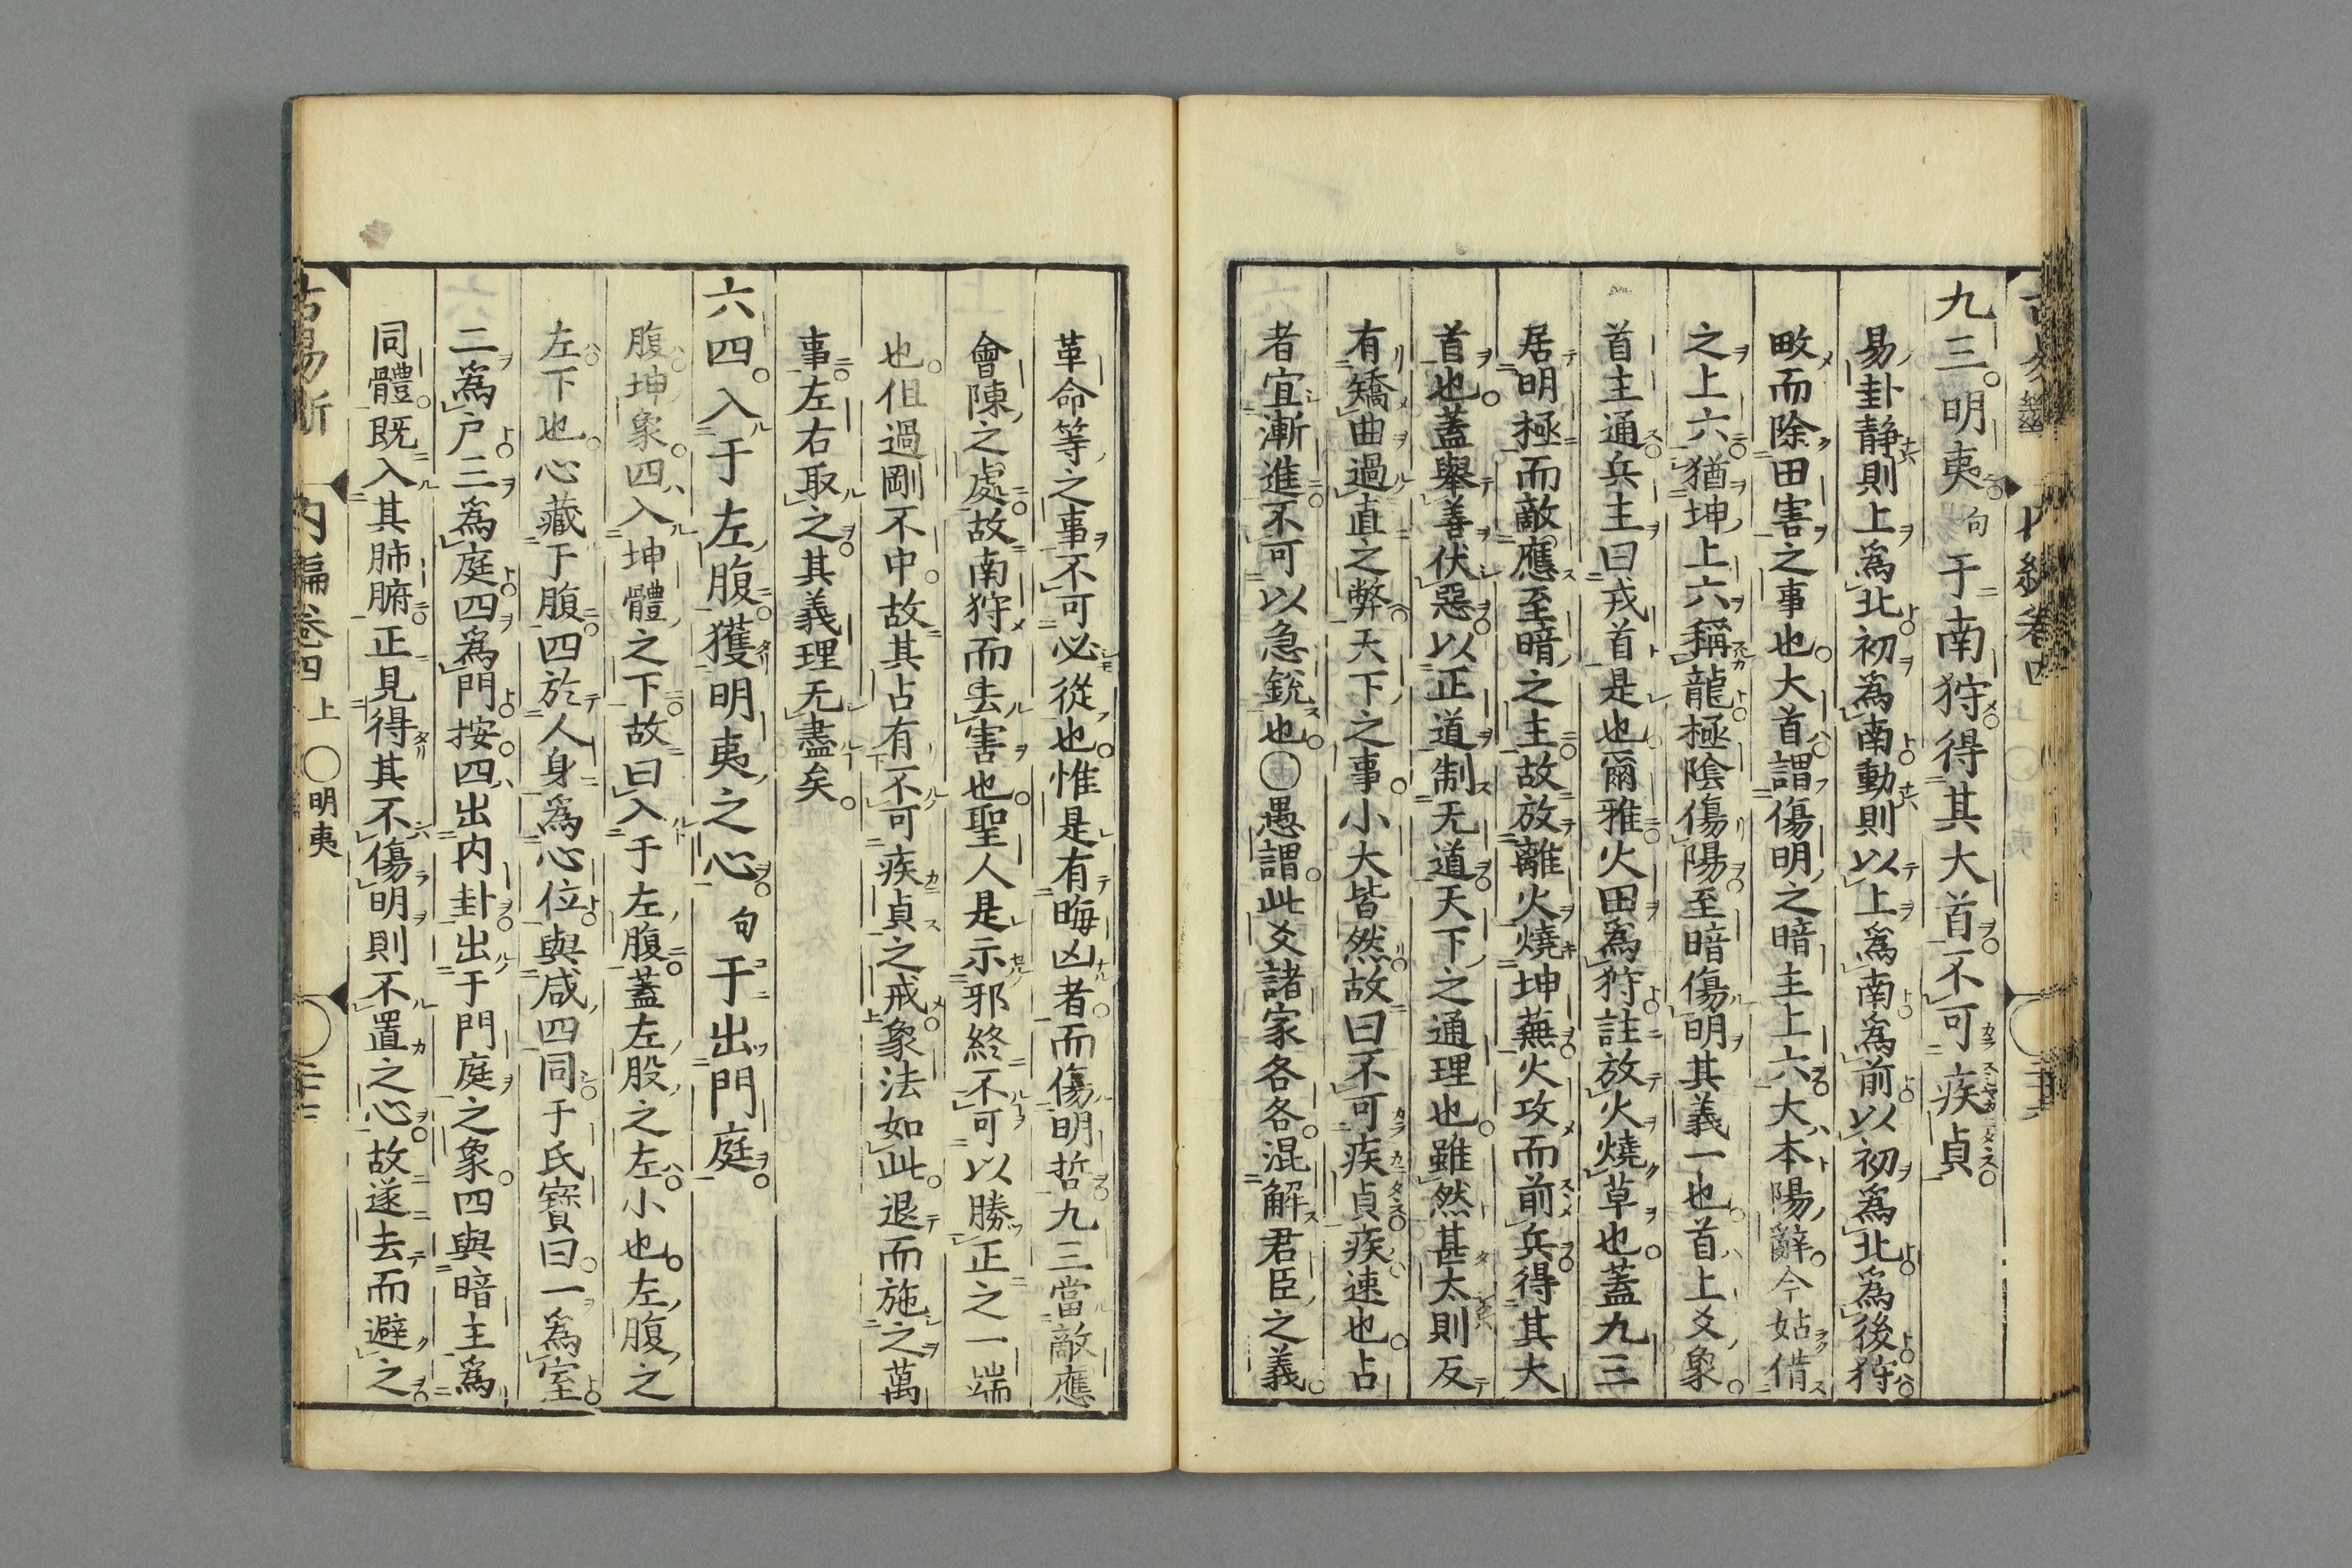 九三。明夷。句于南狩。得其大首。不可疾貞
易卦静則上爲北。初爲南。動則以上爲南。爲前。以初爲北。爲後。狩。
畋而除田害之事也。大首。謂傷明之暗主上六。大本陽辭。今姑借
之上六。猶坤上六稱龍。極陰傷陽。至暗傷明其義一也。首上爻象。
首主通。兵主曰戎首是也。爾雅。火田爲狩。註放火燒草也。蓋九三
居明極而敵應至暗之主。故放離火燒坤蕪。火攻而前兵。得其大
首也。蓋舉善伏惡。以正道制无道。天下之通理也。雖然甚太則反
有矯曲過直之弊。天下之事。小大皆然。故曰不可疾貞。疾。速也。占
者宜漸進。不可以急銳也。◯愚謂。此爻諸家各各。混解君臣之義。
革命等之事。不可必從也。惟是有晦凶者。而傷明哲。九三當敵應
會陳之處。故南狩而去害也。聖人是示邪終不可以勝正之一端
也。但過剛不中。故其占有不可疾貞之戒。象法如此。退而施之萬
事。左右取之。其義理无盡矣。
六四。入于左腹。獲明夷之心。句于出門庭。
腹。坤象。四入坤體之下。故曰入于左腹。蓋左股之左。小也。左腹之
左。下也。心藏于腹。四於人身爲心位。與咸四同。于氏寳曰。一爲室。
二爲戸。三爲庭。四爲門。按。四出内卦。出于門庭之象。四與暗主爲
同體。既入其肺腑。正見得其不傷明則不置之心。故遂去而避之。
内編卷四 上 ◯明夷